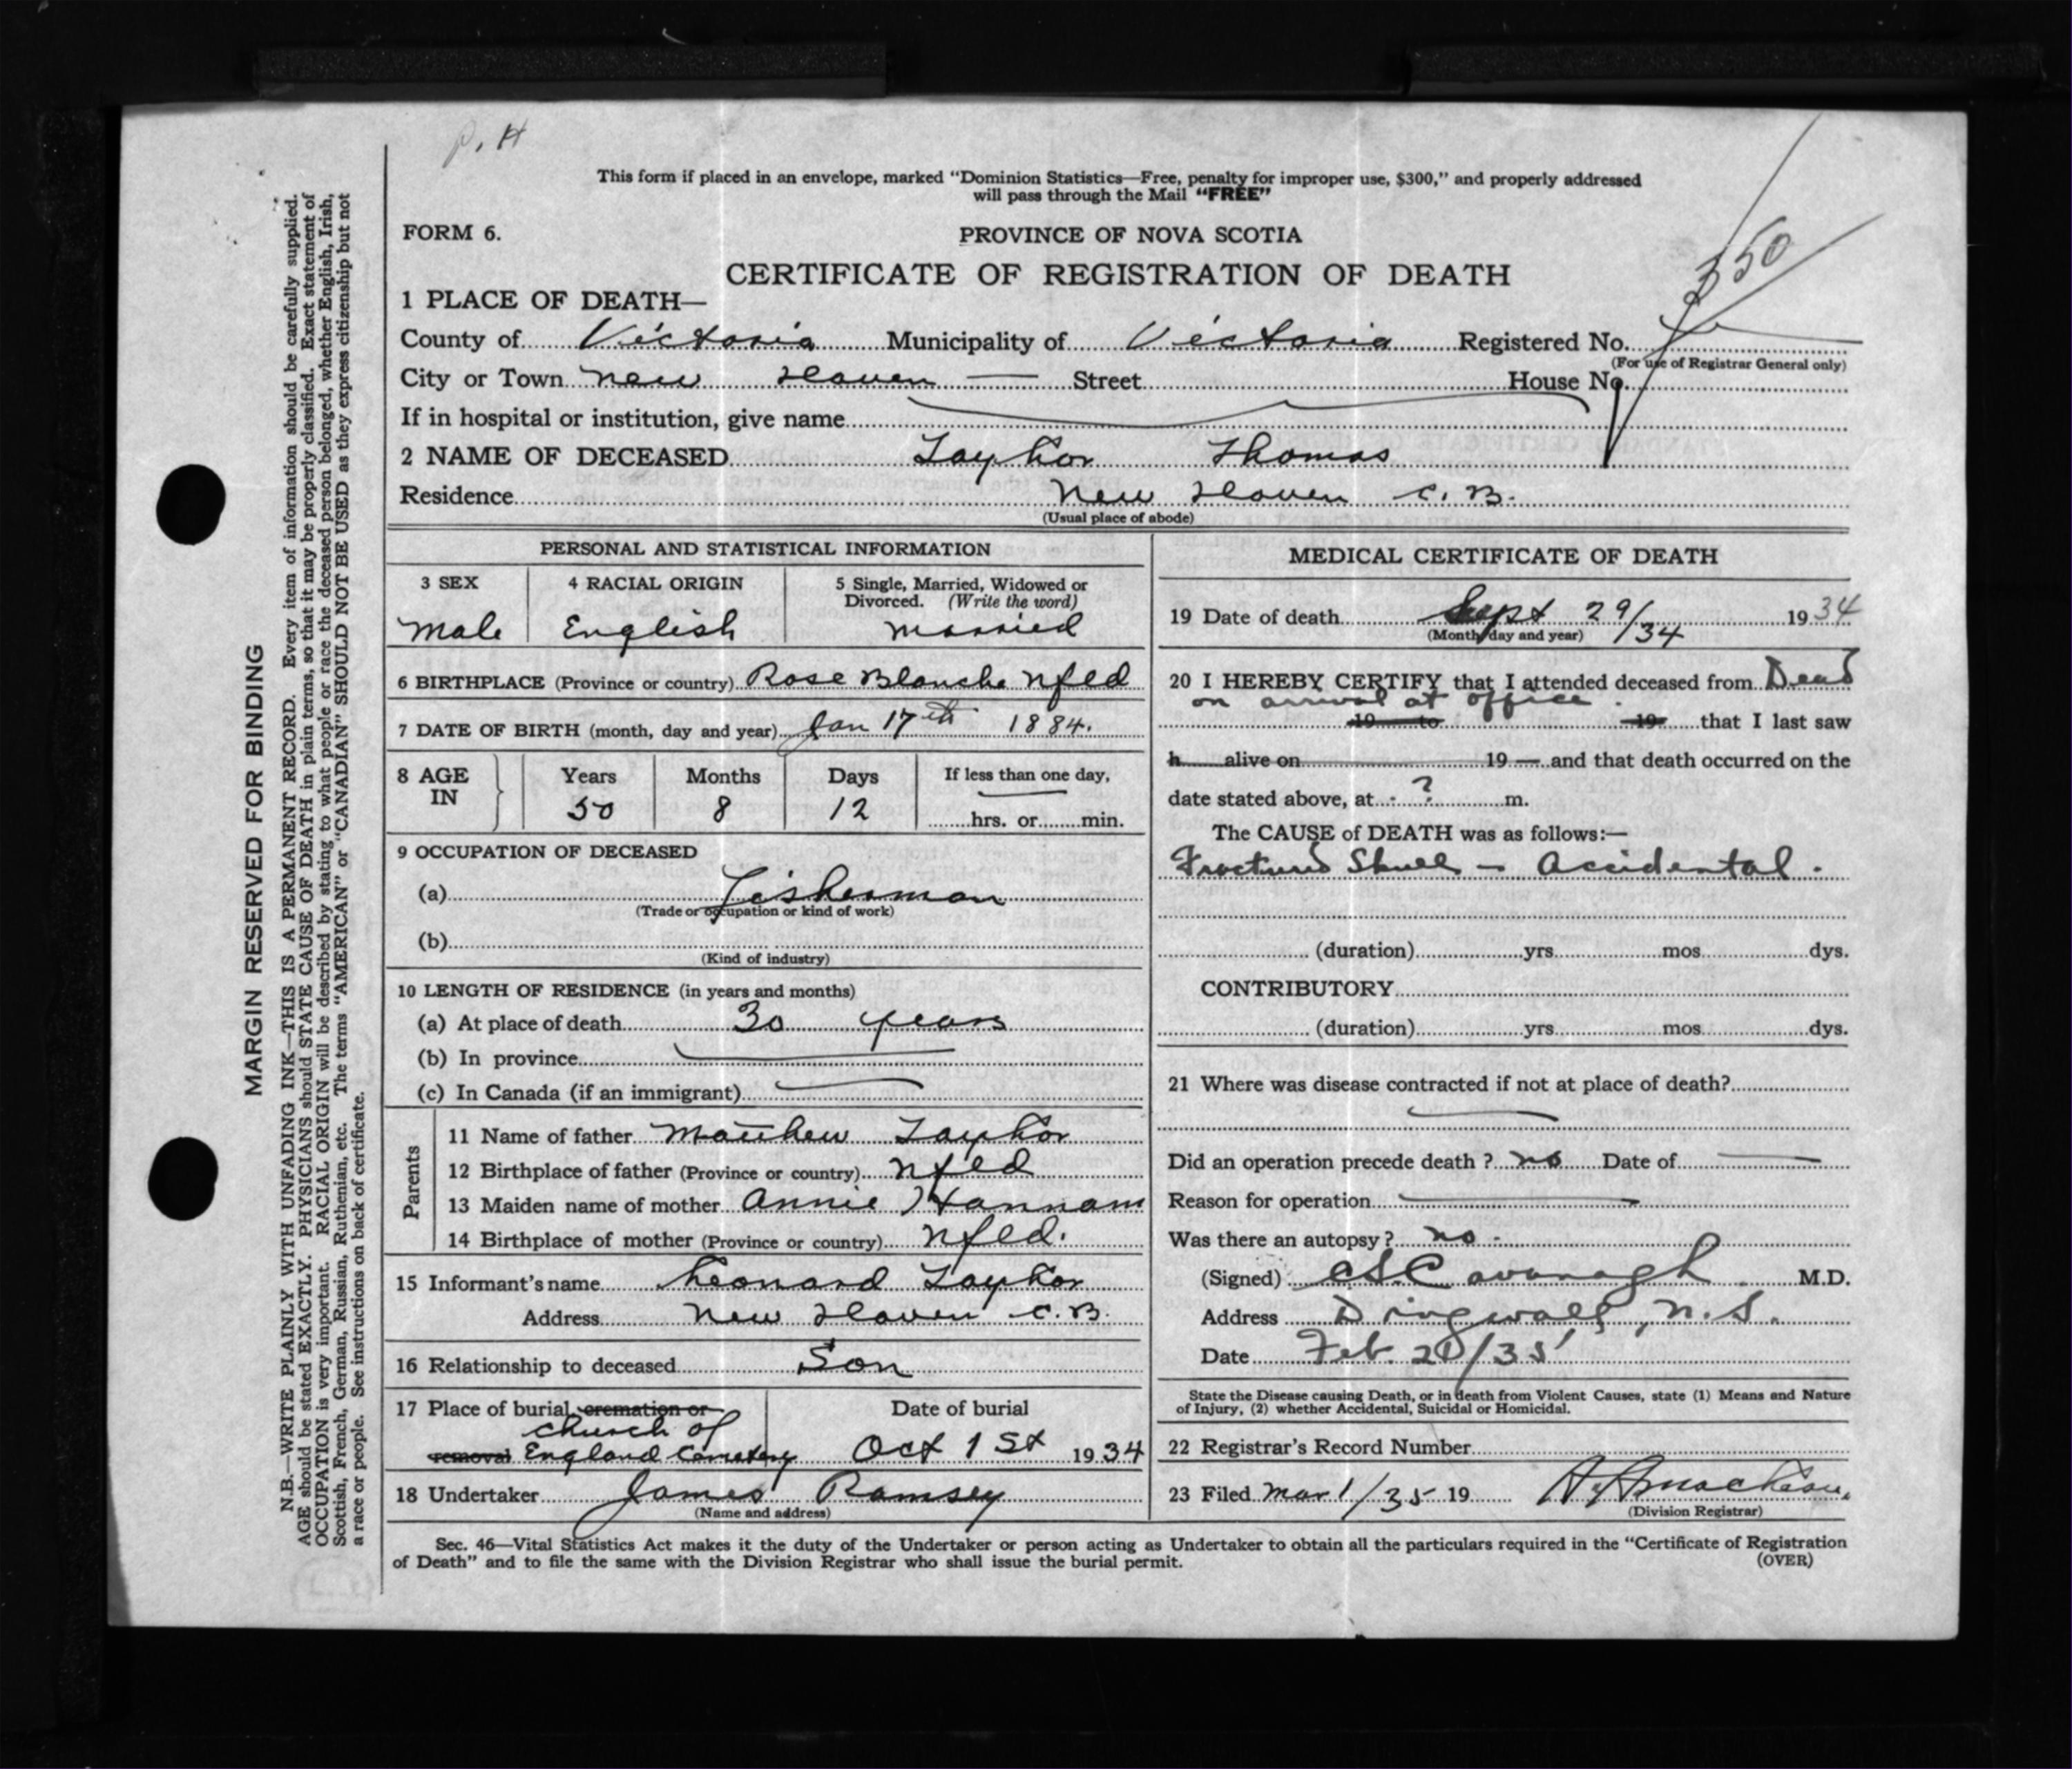 P. H
This form if placed in an envelope, marked "Dominion Statistics—Free, penalty for improper use, $300," and properly addressed
will pass through the Mail "FREE"
FORM 6.
PROVINCE OF NOVA SCOTIA
350
CERTIFICATE OF REGISTRATION OF DEATH
1 PLACE OF DEATH—
County of Victoria Municipality of Victoria Registered No.
(For use of Registrar General only)
City or Town New Haven — Street House No.
If in hospital or institution, give name
2 NAME OF DECEASED Taylor Thomas
Residence New Haven C. B.
(Usual place of abode)
PERSONAL AND STATISTICAL INFORMATION
3 SEX
Male
4 RACIAL ORIGIN
English
5 Single, Married, Widowed or
Divorced. (Write the word)
Married
6 BIRTHPLACE (Province or country) Rose Blanche Nfld
7 DATE OF BIRTH (month, day and year) Jan 17th 1884.
8 AGE IN
Years Months Days If less than one day,
50 8 12 hrs. or min.
9 OCCUPATION OF DECEASED
(a) Fisherman
(Trade or occupation or kind of work)
(b)
(Kind of industry)
10 LENGTH OF RESIDENCE (in years and months)
(a) At place of death 30 years
(b) In province
(c) In Canada (if an immigrant)
Parents
11 Name of father Matthew Taylor
12 Birthplace of father (Province or country) Nfld
13 Maiden name of mother Annie Hannam
14 Birthplace of mother (Province or country) Nfld.
15 Informant's name Leonard Taylor
Address New Haven C.B.
16 Relationship to deceased Son
17 Place of burial, cremation or removal
Church of
England Cemetery
Date of burial
Oct 1 St 1934
18 Undertaker James Ramsey
(Name and address)
MEDICAL CERTIFICATE OF DEATH
19 Date of death Sept 29/34 1934
(Month, day and year)
20 I HEREBY CERTIFY that I attended deceased from Dead
on arrival at office.
19 to 19 that I last saw
h alive on 19 — and that death occurred on the
date stated above, at ? m.
The CAUSE of DEATH was as follows:—
Fractured Skull – Accidental.
(duration) yrs. mos. dys.
CONTRIBUTORY
(duration) yrs. mos. dys.
21 Where was disease contracted if not at place of death?
Did an operation precede death? no Date of
Reason for operation
Was there an autopsy? no.
(Signed) C S Cavanagh M.D.
Address Dingwall, N.S.
Date Feb. 20/35
State the Disease causing Death, or in death from Violent Causes, state (1) Means and Nature
of Injury, (2) whether Accidental, Suicidal or Homicidal.
22 Registrar's Record Number
23 Filed Mar 1/35 19
(Division Registrar)
Sec. 46—Vital Statistics Act makes it the duty of the Undertaker or person acting as Undertaker to obtain all the particulars required in the "Certificate of Registration
of Death" and to file the same with the Division Registrar who shall issue the burial permit.
(OVER)
MARGIN RESERVED FOR BINDING
N.B.—WRITE PLAINLY WITH UNFADING INK—THIS IS A PERMANENT RECORD. Every item of information should be carefully supplied.
AGE should be stated EXACTLY. PHYSICIANS should STATE CAUSE OF DEATH in plain terms, so that it may be properly classified. Exact statement of
OCCUPATION is very important. RACIAL ORIGIN will be described by stating to what people or race the deceased person belonged, whether English, Irish,
Scottish, French, German, Russian, Ruthenian, etc. The terms "AMERICAN" or "CANADIAN" SHOULD NOT BE USED as they express citizenship but not
a race or people. See instructions on back of certificate.